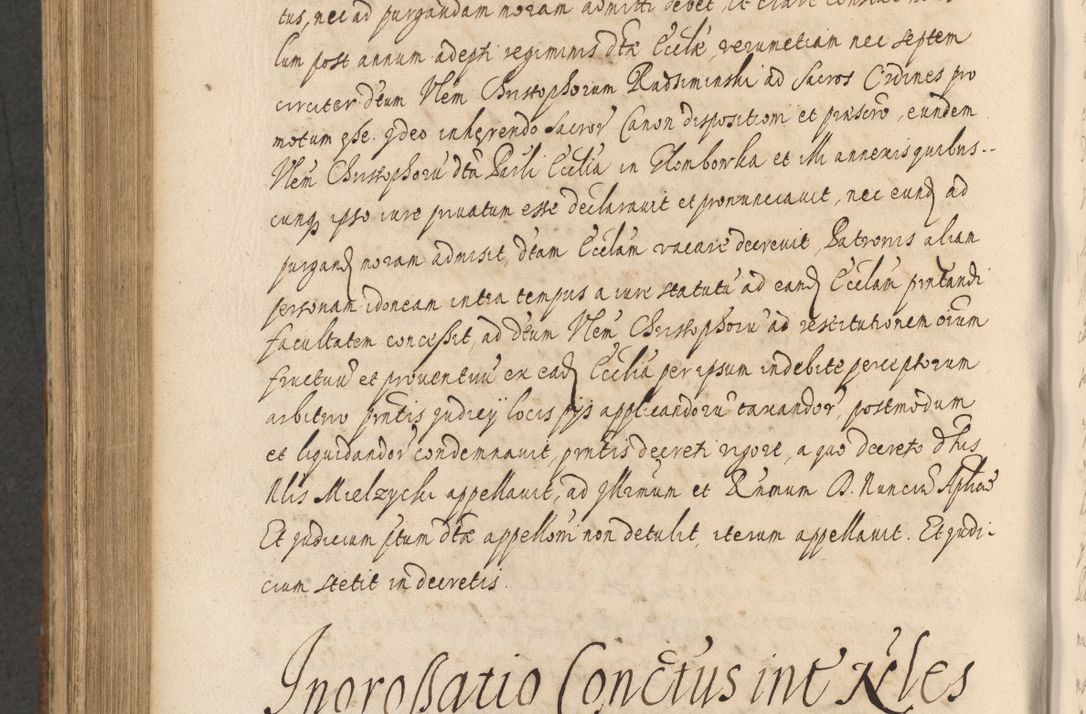 tus, nec ad purgandam moram admitti debet, et clare
lum post annum adepti regiminis dtæ Eccliæ, verumetiam nec septem
circiter dtum Nlem Christophorum Radziminski ad Sacros Ordines pro
motum esse. Ideo inhærendo Sacror Canon dispositioni et præscro, eundem
Nlem Christophorū dtā Parli Ecclia in Glombowka et illi annexis quibus--
cunq ipso iure privatum esse declaravit et pronunciavit, nec eund ad
purgand moram admisit, dtam Ecclam vacare decrevit, Patronis aliam
personam idoneam intra tempus a iure statutū ad eand Ecclam pntandi
facultatem concessit, ad dtum Nlem Christophorū ad restitutionem oīum
fructuū et proventuū ex ead Ecclia per ipsum indebite perceptorum
arbitrio pntis Judicij locis pijs applicandorū taxandor, postmodum
et liquidandor condemnavit, pntis decreti vigore, a quo decreto d hus
Nlis Mielzycki appellavit, ad Illrimum et Rnmum D. Nunciū Aplicū
Et Judicium istum dtæ appelloni non detulit, iterum appellavit. Et Judi-
cium stetit in decretis.
Ingrossatio Conctus int Nles